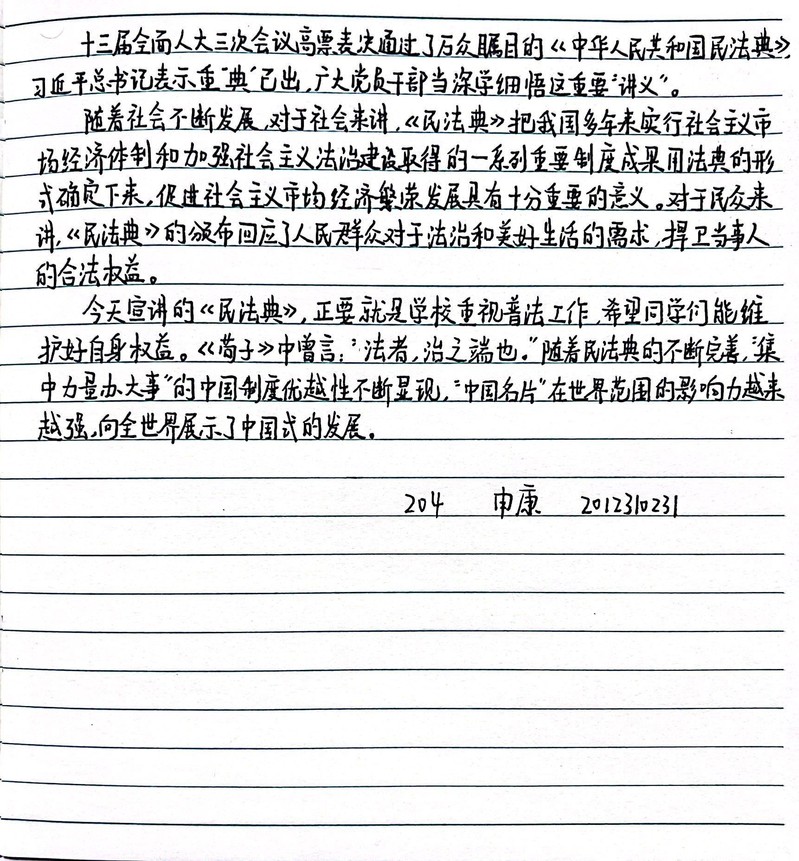 十三届全面人大三次会议高票表决通过了万众瞩目的《中华人民共和国民法典》,
习近平总书记表示重“典”已出,广大党员干部当深学细悟这重要“讲义”。
随着社会不断发展,对于社会来讲,《民法典》把我国多年来实行社会主义市
场经济体制和加强社会主义法治建设取得的一系列重要制度成果用法典的形
式确定下来,促进社会主义市场经济繁荣发展具有十分重要的意义。对于民众来
讲,《民法典》的颁布回应了人民群众对于法治和美好生活的需求,捍卫当事人
的合法权益。
今天宣讲的《民法典》,正要就是学校重视普法工作,希望同学们能维
护好自身权益。《荀子》中曾言:“法者,治之端也。”随着民法典的不断完善,“集
中力量办大事”的中国制度优越性不断显现,“中国名片”在世界范围的影响力越来
越强,向全世界展示了中国式的发展。
204 申康 2012310231